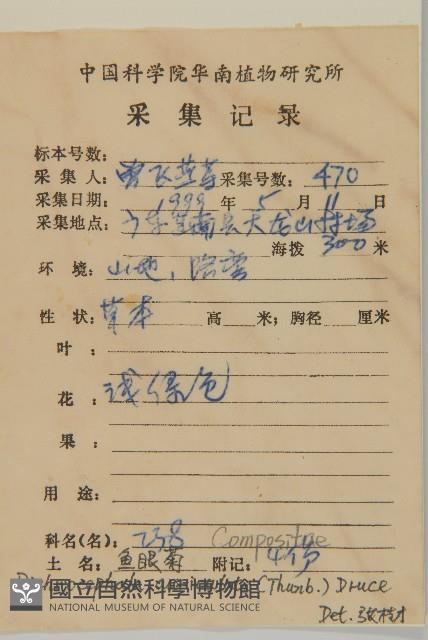 中国科学院华南植物研究所
采集记录
标本号数:
采集人: 曾飞燕等 采集号数: 470
采集日期: 1999 年 5 月 11 日
采集地点: 广东 南县天 山林场
海拨 300 米
环境: 山地, 路旁
性状: 草本 高 米; 胸径 厘米
叶:
花: 浅绿色
果:
用途:
科名(名): 238 Compositae
土名: 鱼眼菊 附记: 4份
(Thunb.) Druce
國立自然科學博物館
NATIONAL MUSEUM OF NATURAL SCIENCE
Det. 张桂才